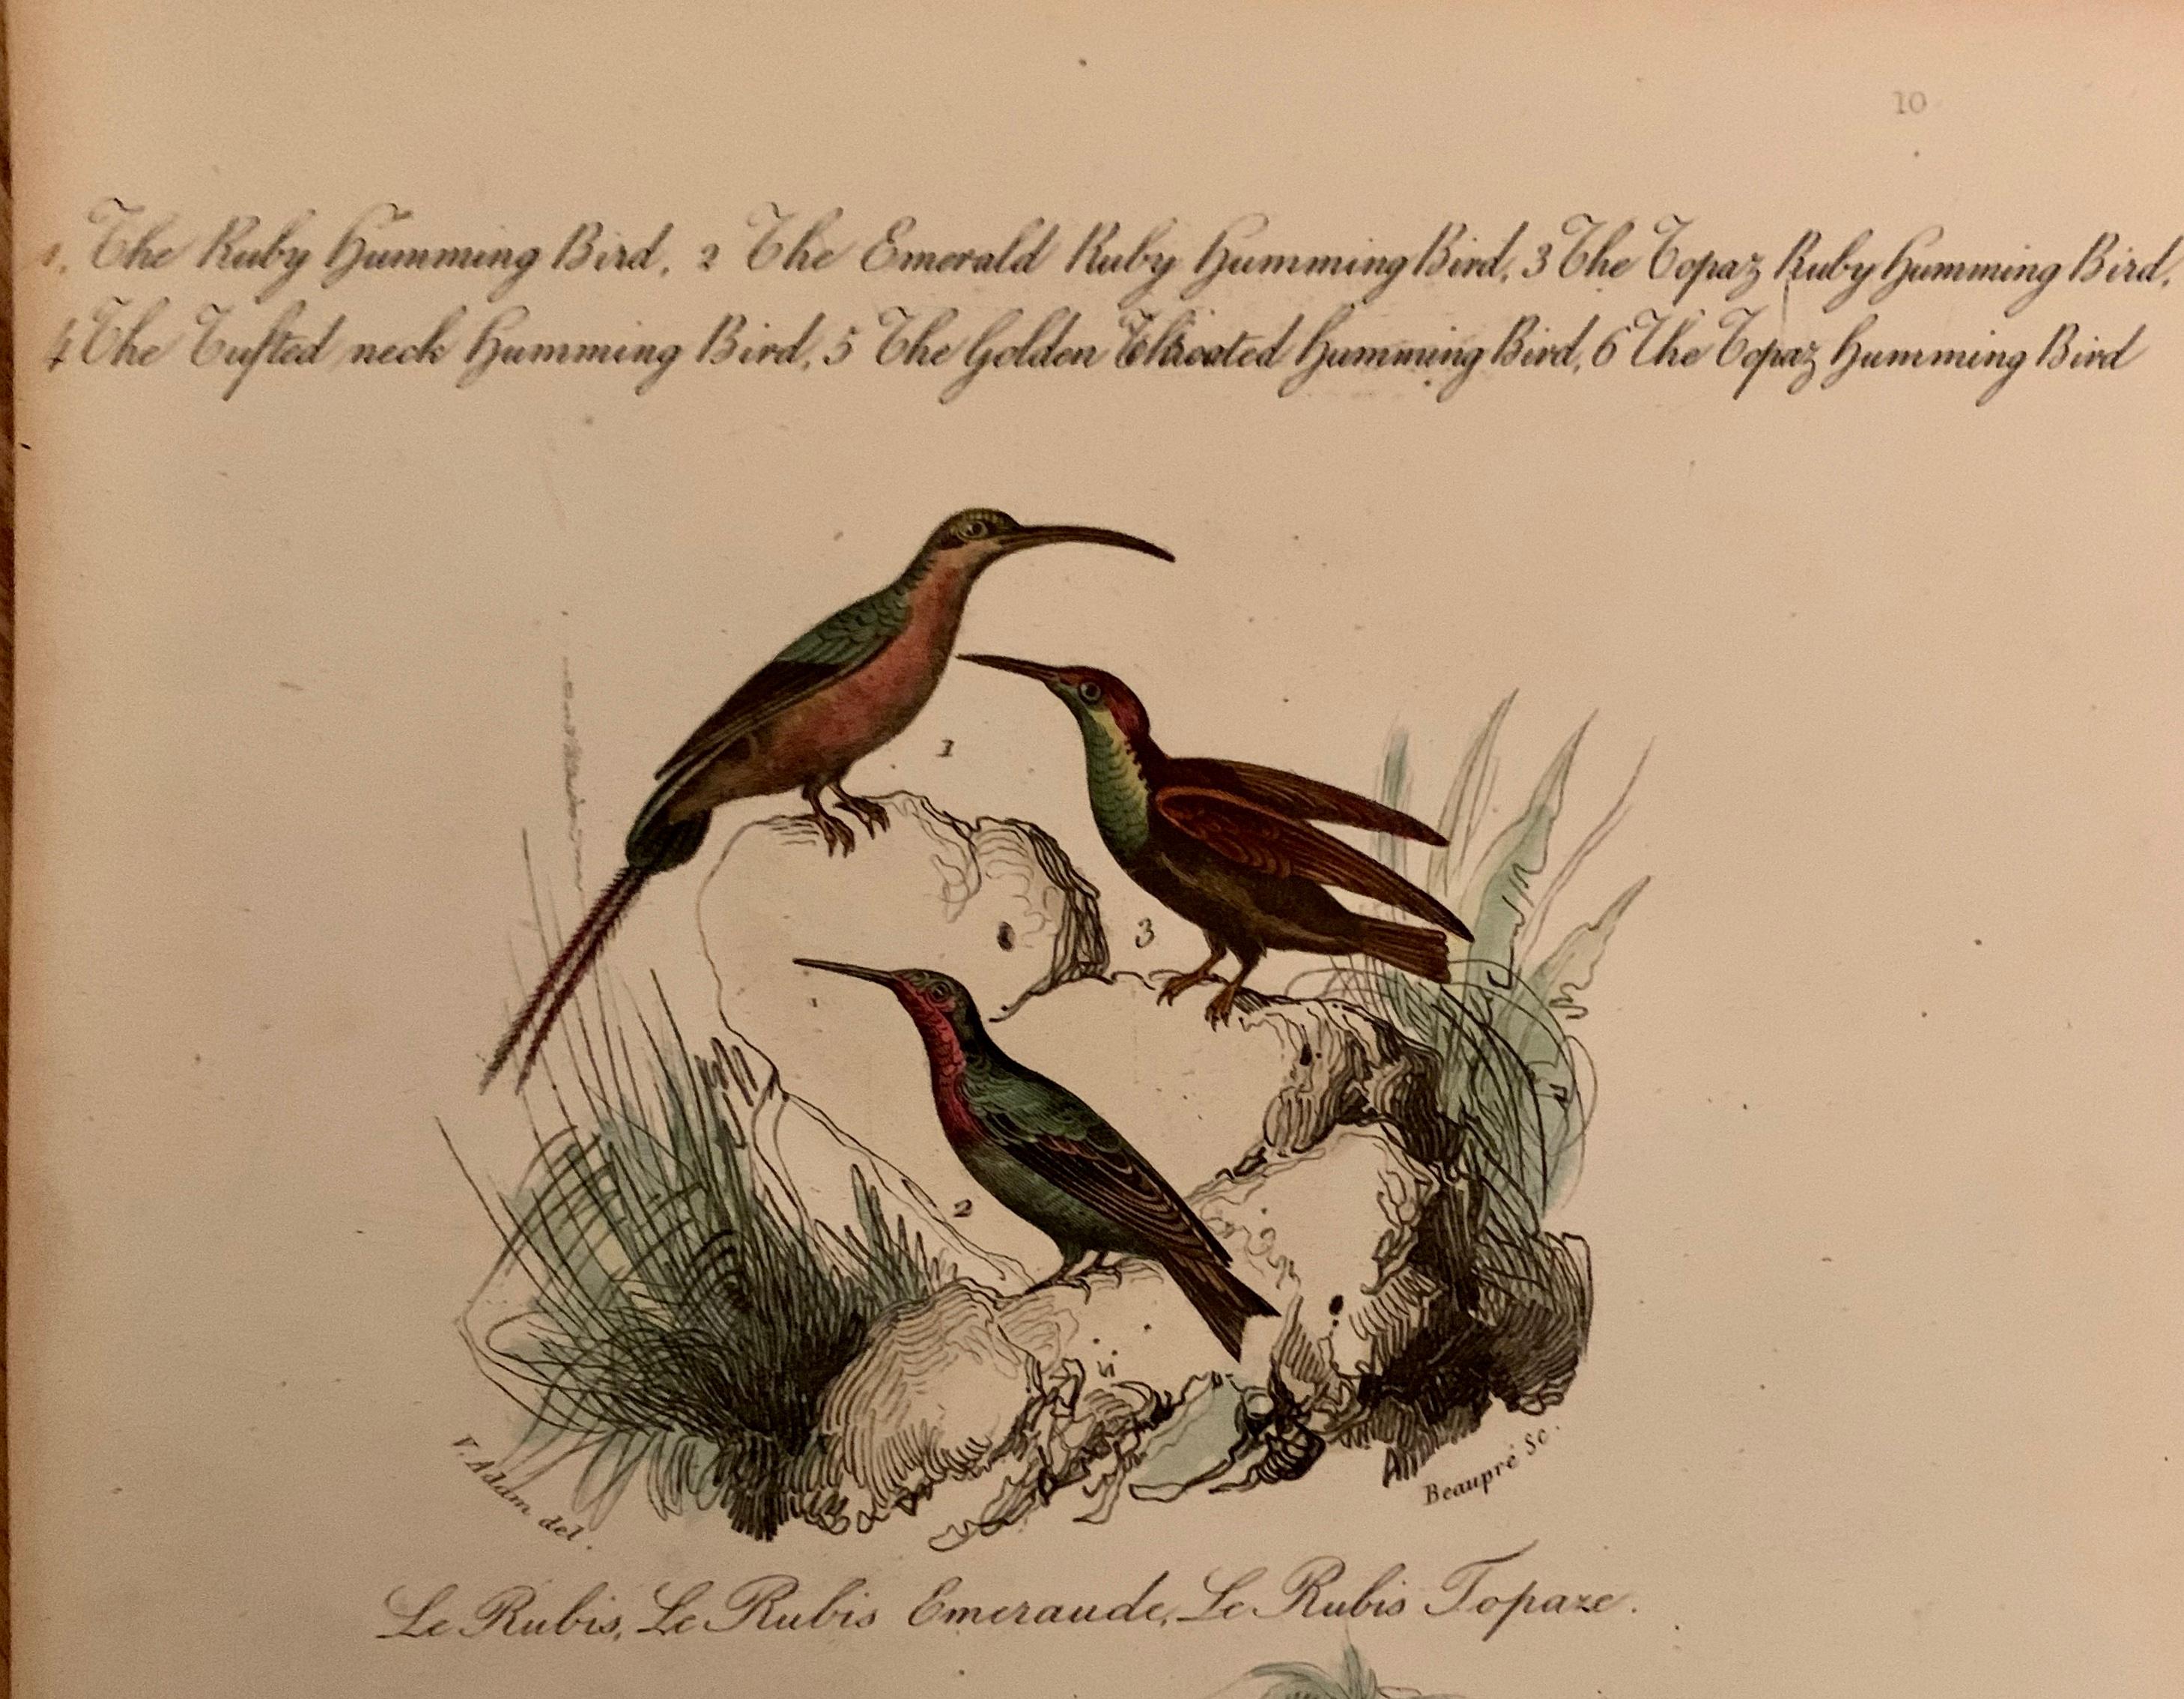 10
1. The Ruby Humming Bird, 2 The Emerald Ruby Humming Bird, 3 The Topaz Ruby Humming Bird,
4 The Tufted neck Humming Bird, 5 The Golden Throated Humming Bird, 6 The Topaz Humming Bird
1
3
2
V. Adam del.
Beaupré Sc.
Le Rubis, Le Rubis Emeraude, Le Rubis Topaze.